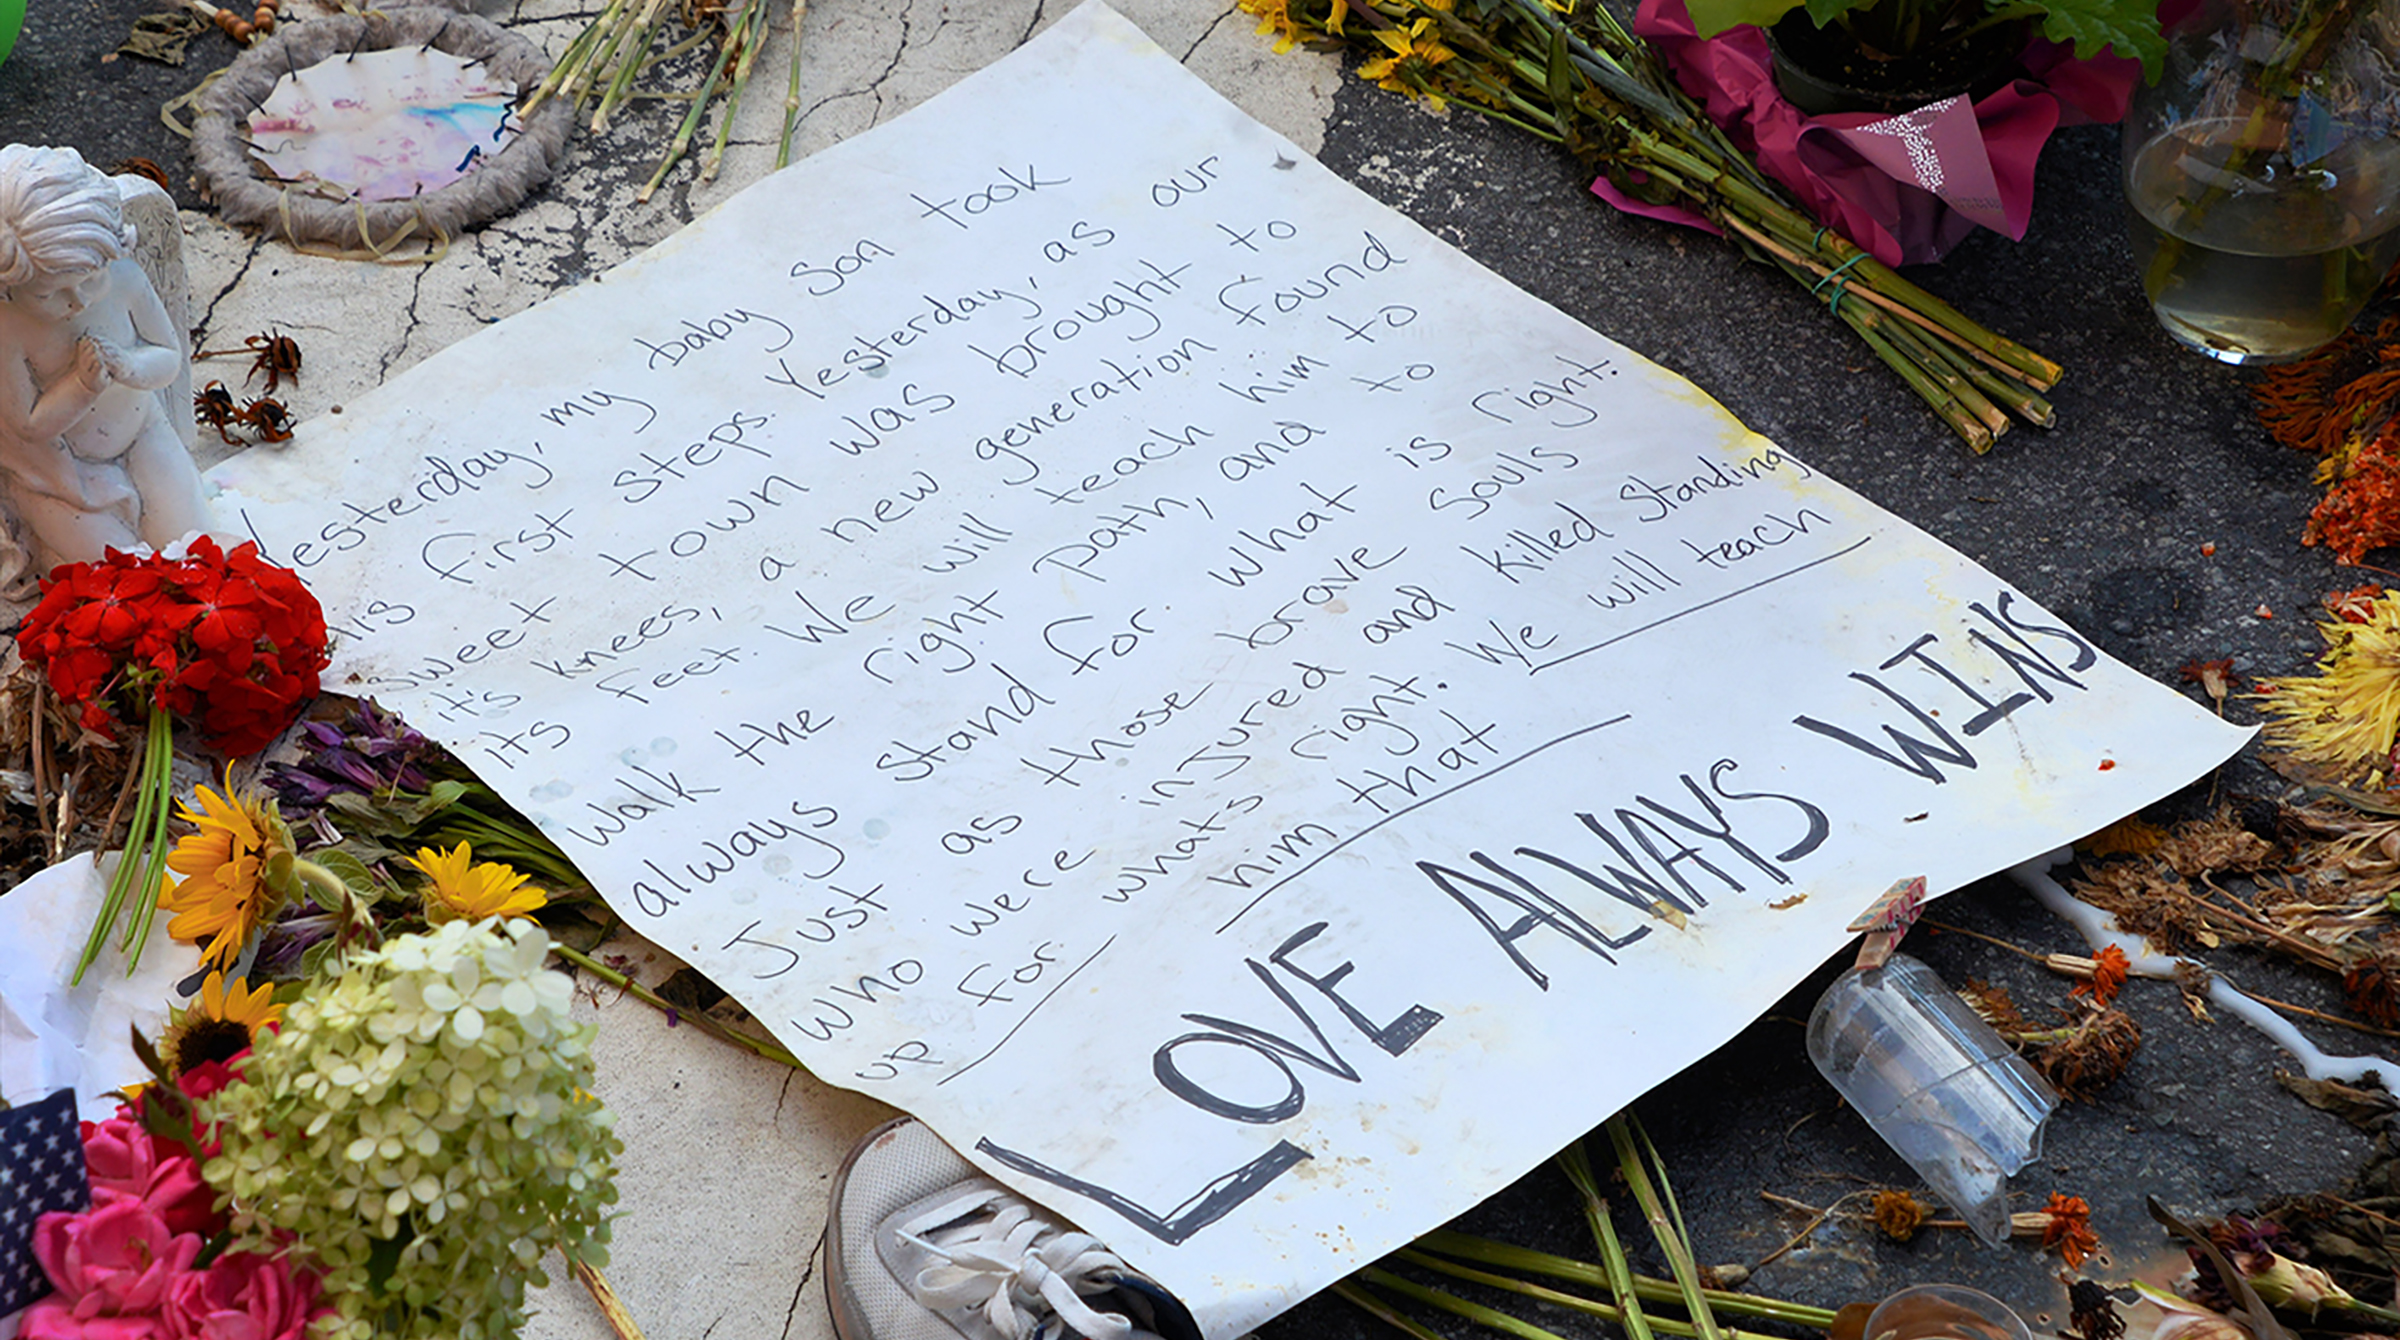 Yesterday, my baby son took
his first steps. Yesterday, as our
sweet town was brought to
it's knees, a new generation found
its feet. We will teach him to
walk the right path, and to
always stand for what is right.
Just as those brave souls
who were injured and killed standing
up for whats right. We will teach
him that
LOVE ALWAYS WINS